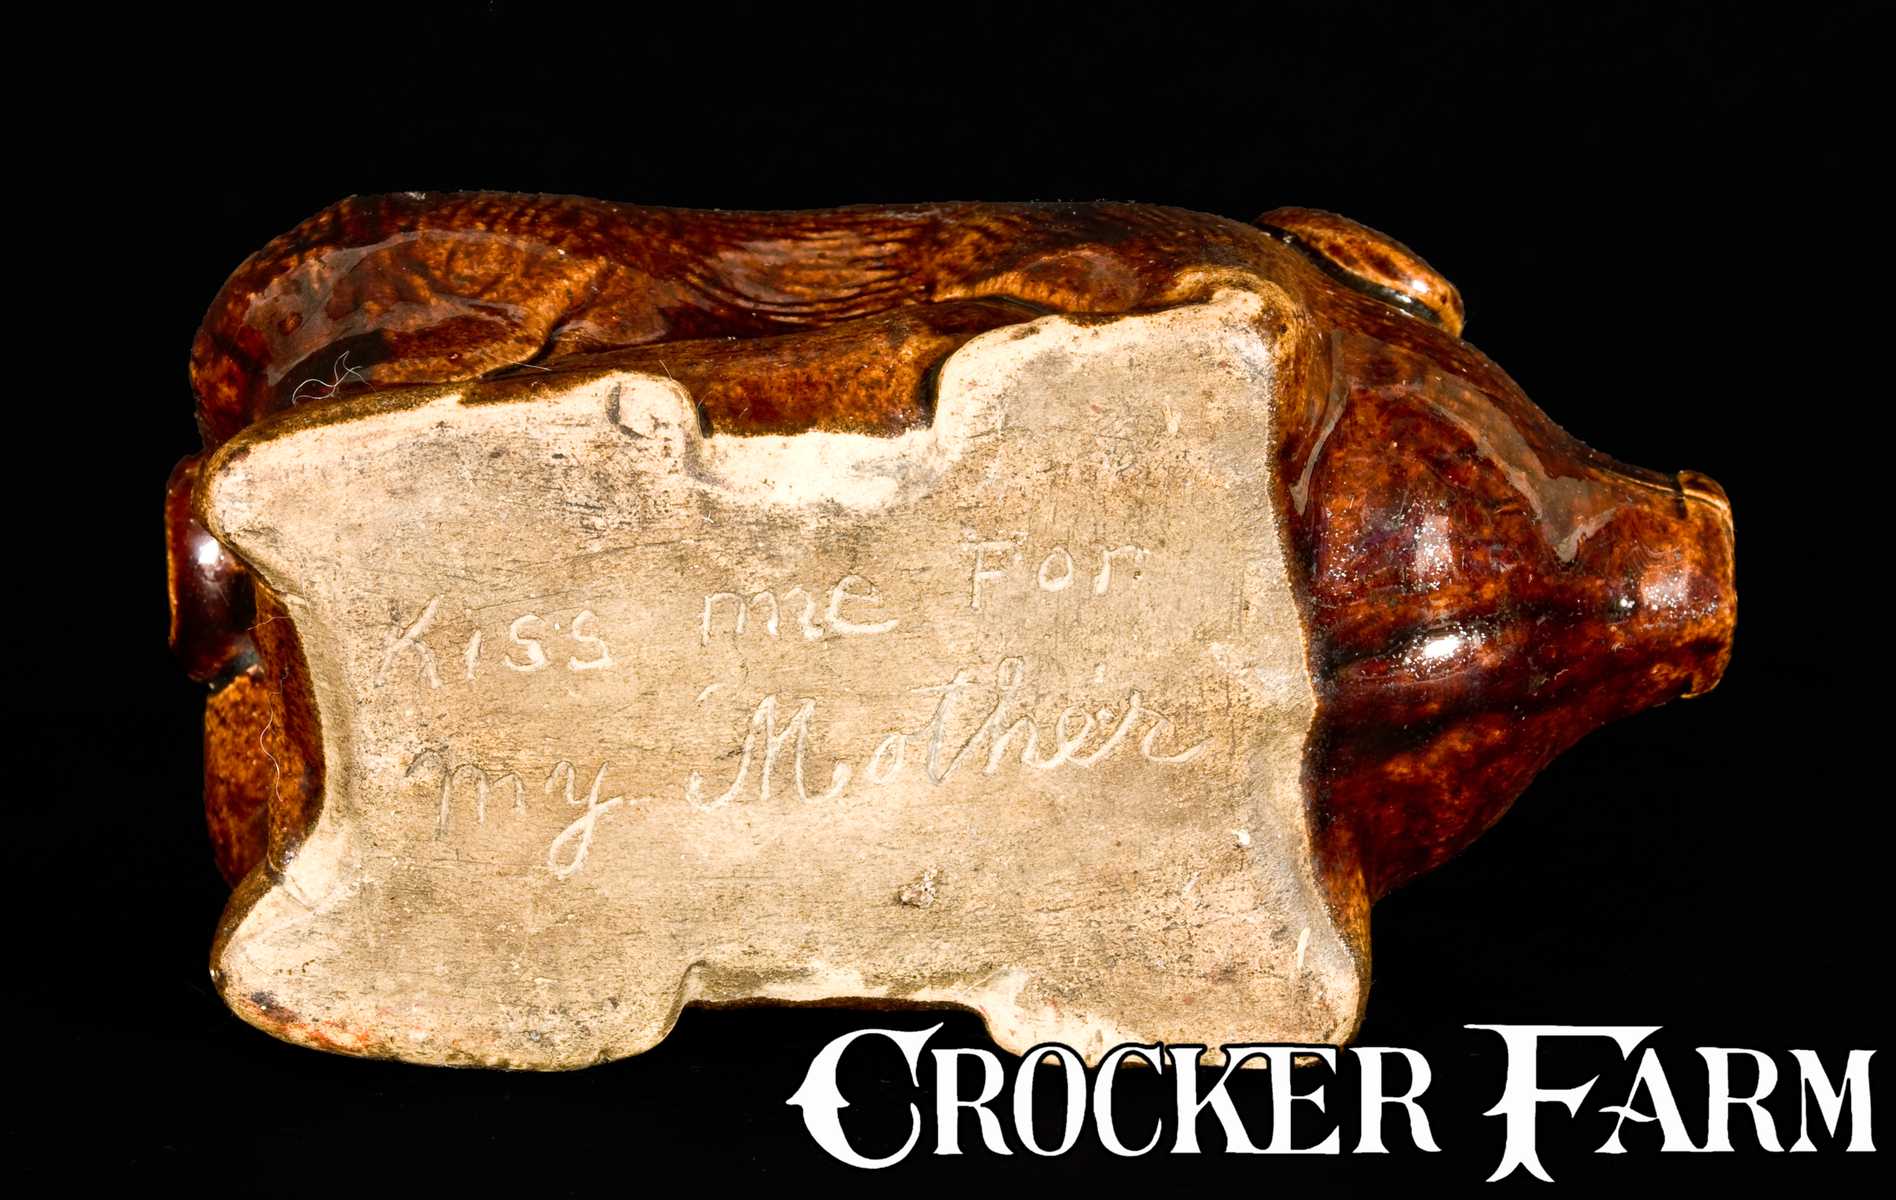 Kiss me For
my Mother
CROCKER FARM